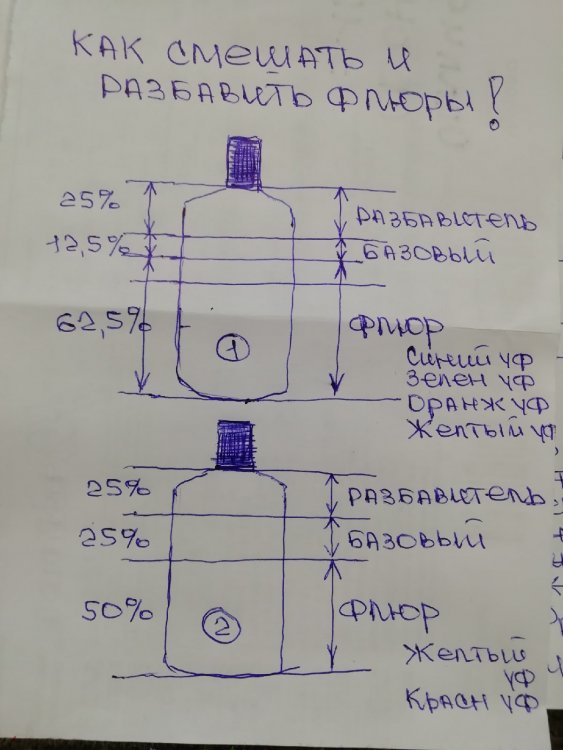 КАК СМЕШАТЬ И
РАЗБАВИТЬ ФЛЮРЫ!
25%
РАЗБАВИТЕЛЬ
12,5%
БАЗОВЫЙ
62,5%
ФЛЮР
1
СИНИЙ УФ
ЗЕЛЕН УФ
ОРАНЖ УФ
ЖЕЛТЫЙ УФ
25%
РАЗБАВИТЕЛЬ
25%
БАЗОВЫЙ
50%
ФЛЮР
2
ЖЕЛТЫЙ
УФ
КРАСН УФ